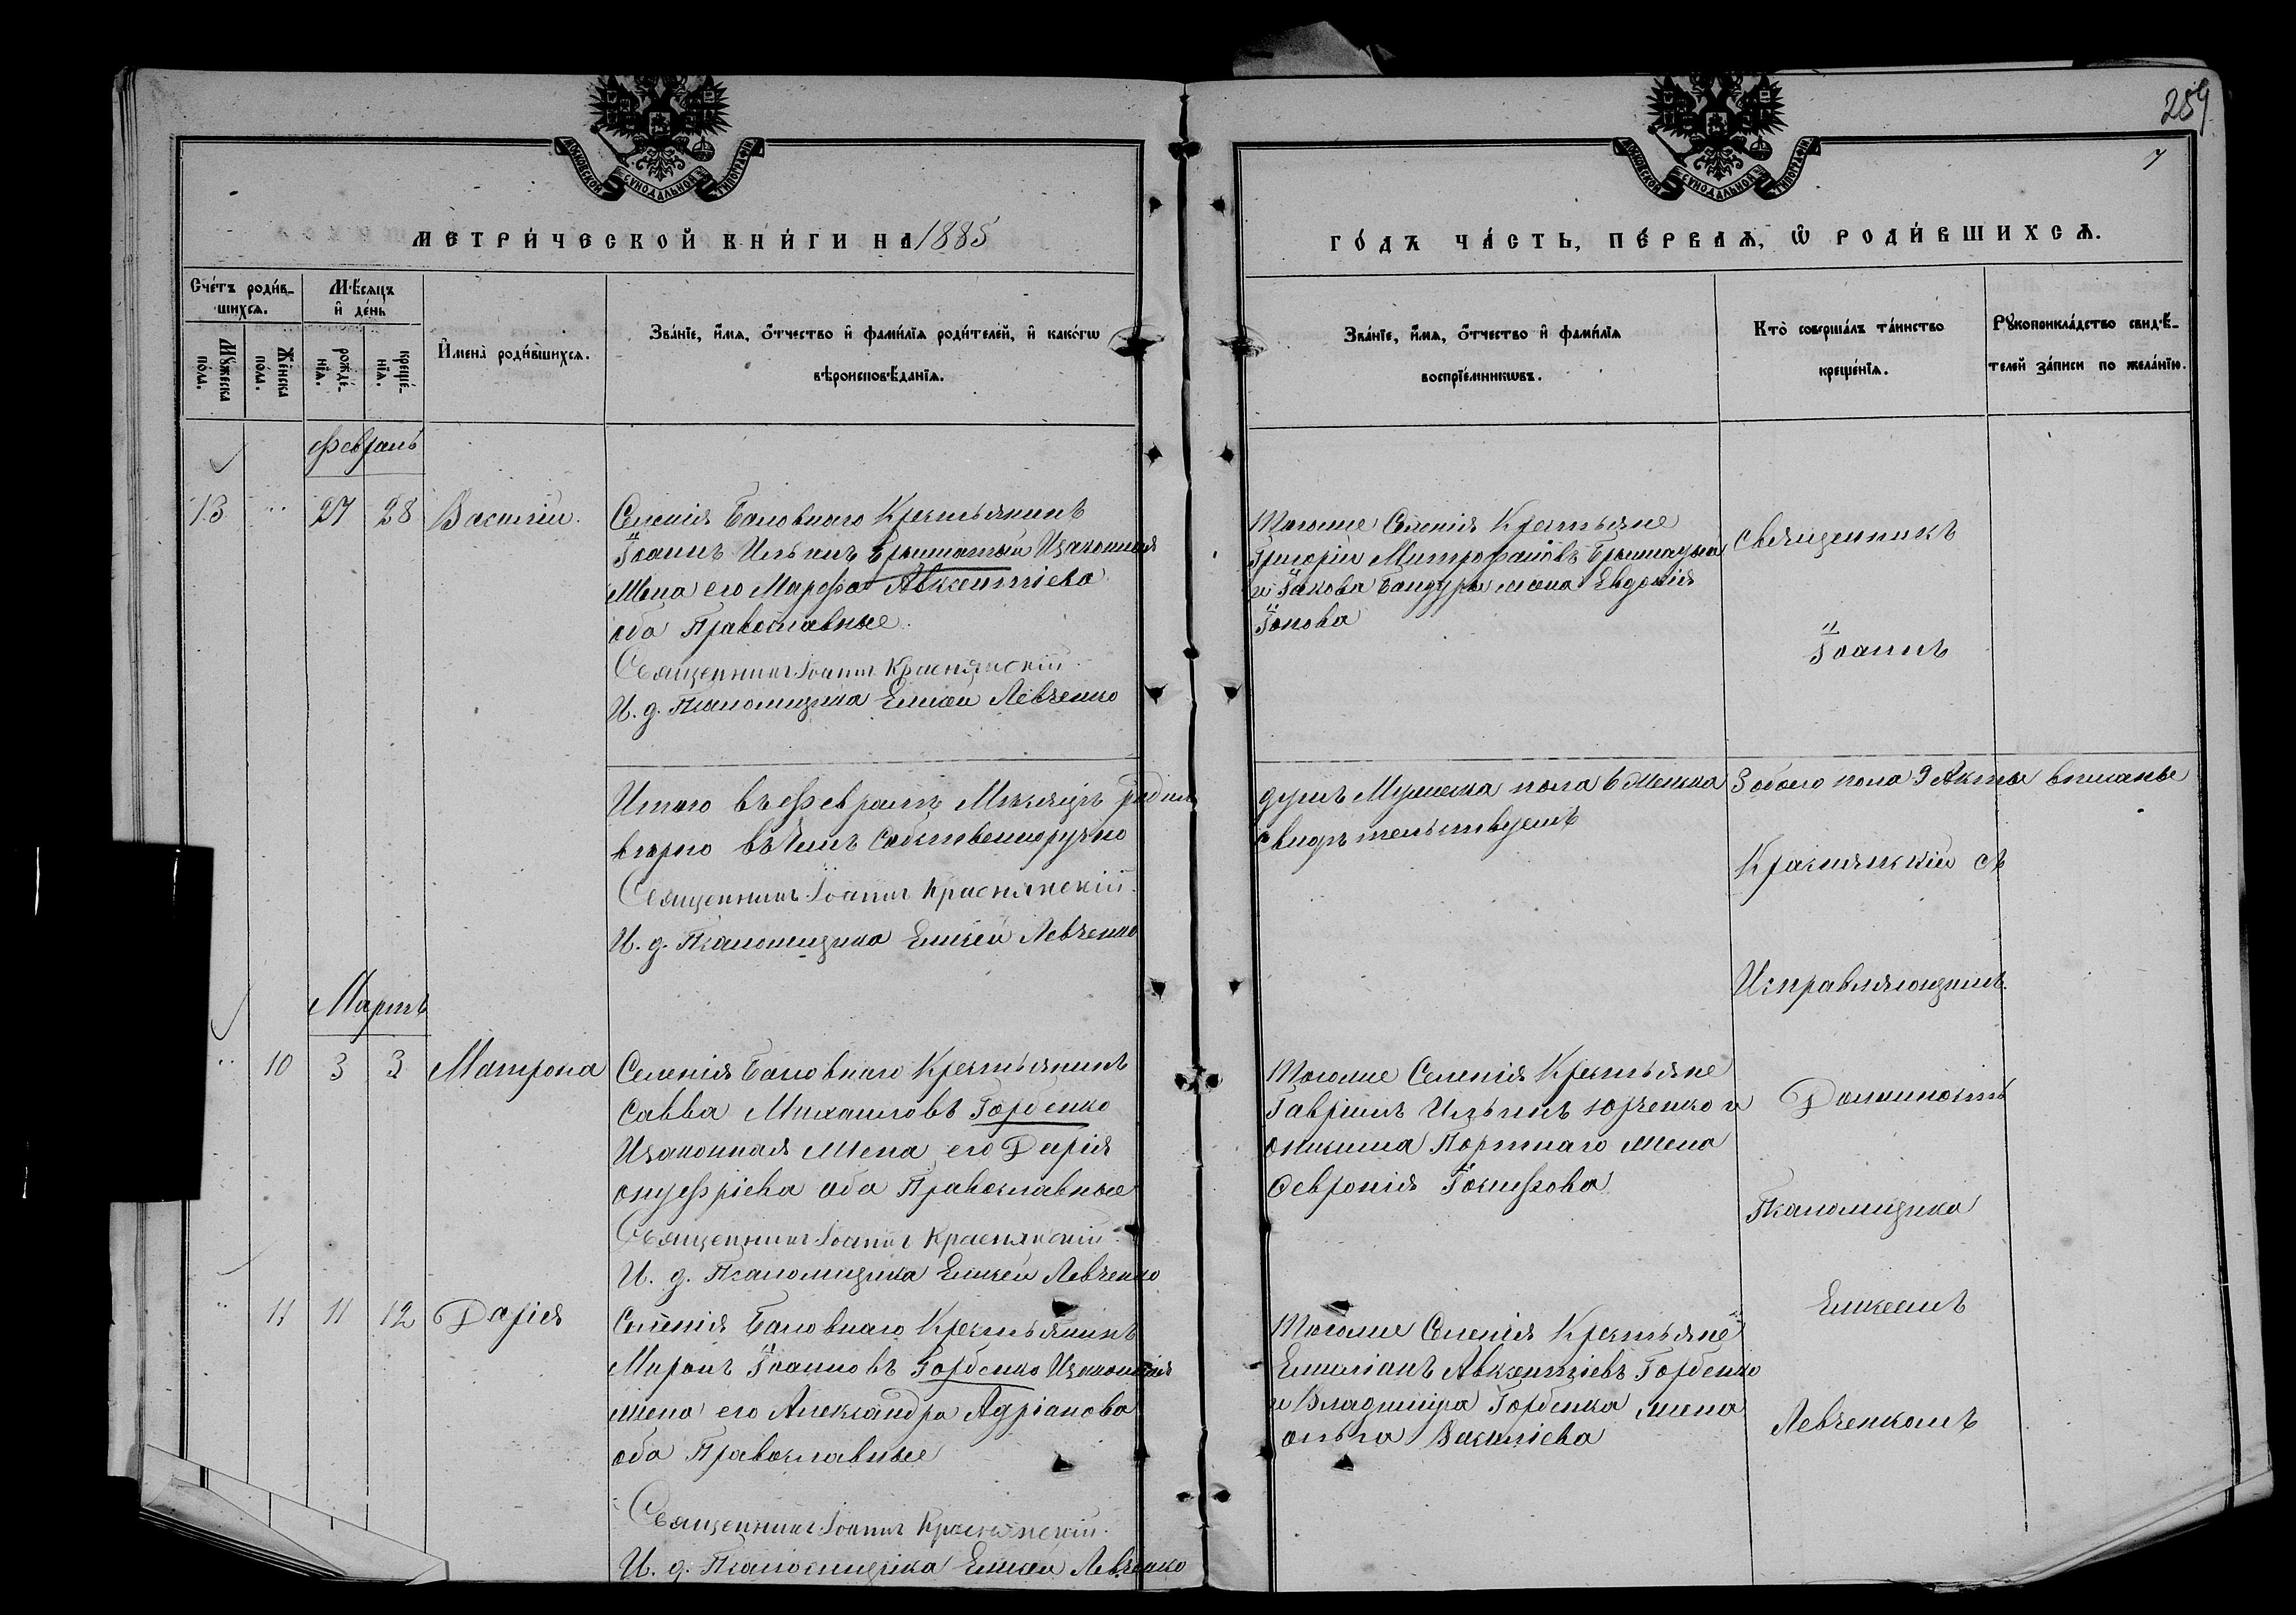 259
7
МОСКОВСКОЙ СѴНОДАЛЬНОЙ ТИПОГРАФІИ
МОСКОВСКОЙ СѴНОДАЛЬНОЙ ТИПОГРАФІИ
МЕТРИ́ЧЕСКОЙ КНИ́ГИ НА 1885
ГО́ДЪ ЧА́СТЬ, ПЕ́РВАѦ, Ѡ҆ РОДИ́ВШИХСѦ.
Сче́тъ роди́в-
шихсѧ.
Мѣ́сѧцъ
и҆ де́нь
Мꙋ́жеска по́ла.
Же́нска по́ла.
рожде́-нїѧ.
креще́-нїѧ.
И҆мена̀ роди́вшихсѧ.
Зва́нїе, и҆́мѧ, ѻ҆́тчество и҆ фамѝлїѧ роди́телей, и҆ како́гѡ
вѣроисповѣ́данїѧ.
Зва́нїе, и҆́мѧ, ѻ҆́тчество и҆ фамѝлїѧ
воспрїе́мникѡвъ.
Кто̀ соверша́лъ та́инство
креще́нїѧ.
Рꙋкоприкла́дство свидѣ́-
телей за́писи по жела́нїю.
Февраль
13 " 27 28 Василій.
Селенія Баловнаго Крестьянинъ
Іоаннъ Ильинъ Изаконная
Жена его Марфа Авксентіева
оба Православные.
Священникъ Іоаннъ Краснянскій.
И. д. Псаломщика Елисей Левченко
Тогоже Селенія Крестьяне
Григорій Митрофановъ
и Іакова Бандуры жена Евдокія
Іонова
Священникъ
Іоаннъ
Итого въ Февралѣ Мѣсяцѣ родил.
вѣрно въ чемъ собственноручно
Священникъ Іоаннъ Краснянскій.
И. д. Псаломщика Елисей Левченко
душъ Мужеска пола 6 женска 3 обоего пола 9 Акты вписаные
свидѣтельствуемъ
Краснянскій съ
Исправляющимъ
Мартъ
" 10 3 3 Матрона
Селенія Баловнаго Крестьянинъ
Савва Михаиловъ Горбенко
Изаконная жена его Дарія
онуфріева оба Православные
Священникъ Іоаннъ Краснянскій.
И. д. Псаломщика Елисей Левченко
Тогоже Селенія Крестьяне
Гавріилъ Ильинъ Юрченко и
онисима Портнаго жена
Февронія Іосифова
Должность
Псаломщика
" 11 11 12 Дарія
Селенія Баловнаго Крестьянинъ
Миронъ Іоанновъ Горбенко Изаконная
жена его Александра Адріанова
оба Православные
Священникъ Іоаннъ Краснянскій.
И. д. Псаломщика Елисей Левченко
Тогоже Селенія Крестьяне
Емиліанъ Авксентіевъ Горбенко
и Владиміра Горбенка жена
ольга Василіева
Елисеемъ
Левченкомъ